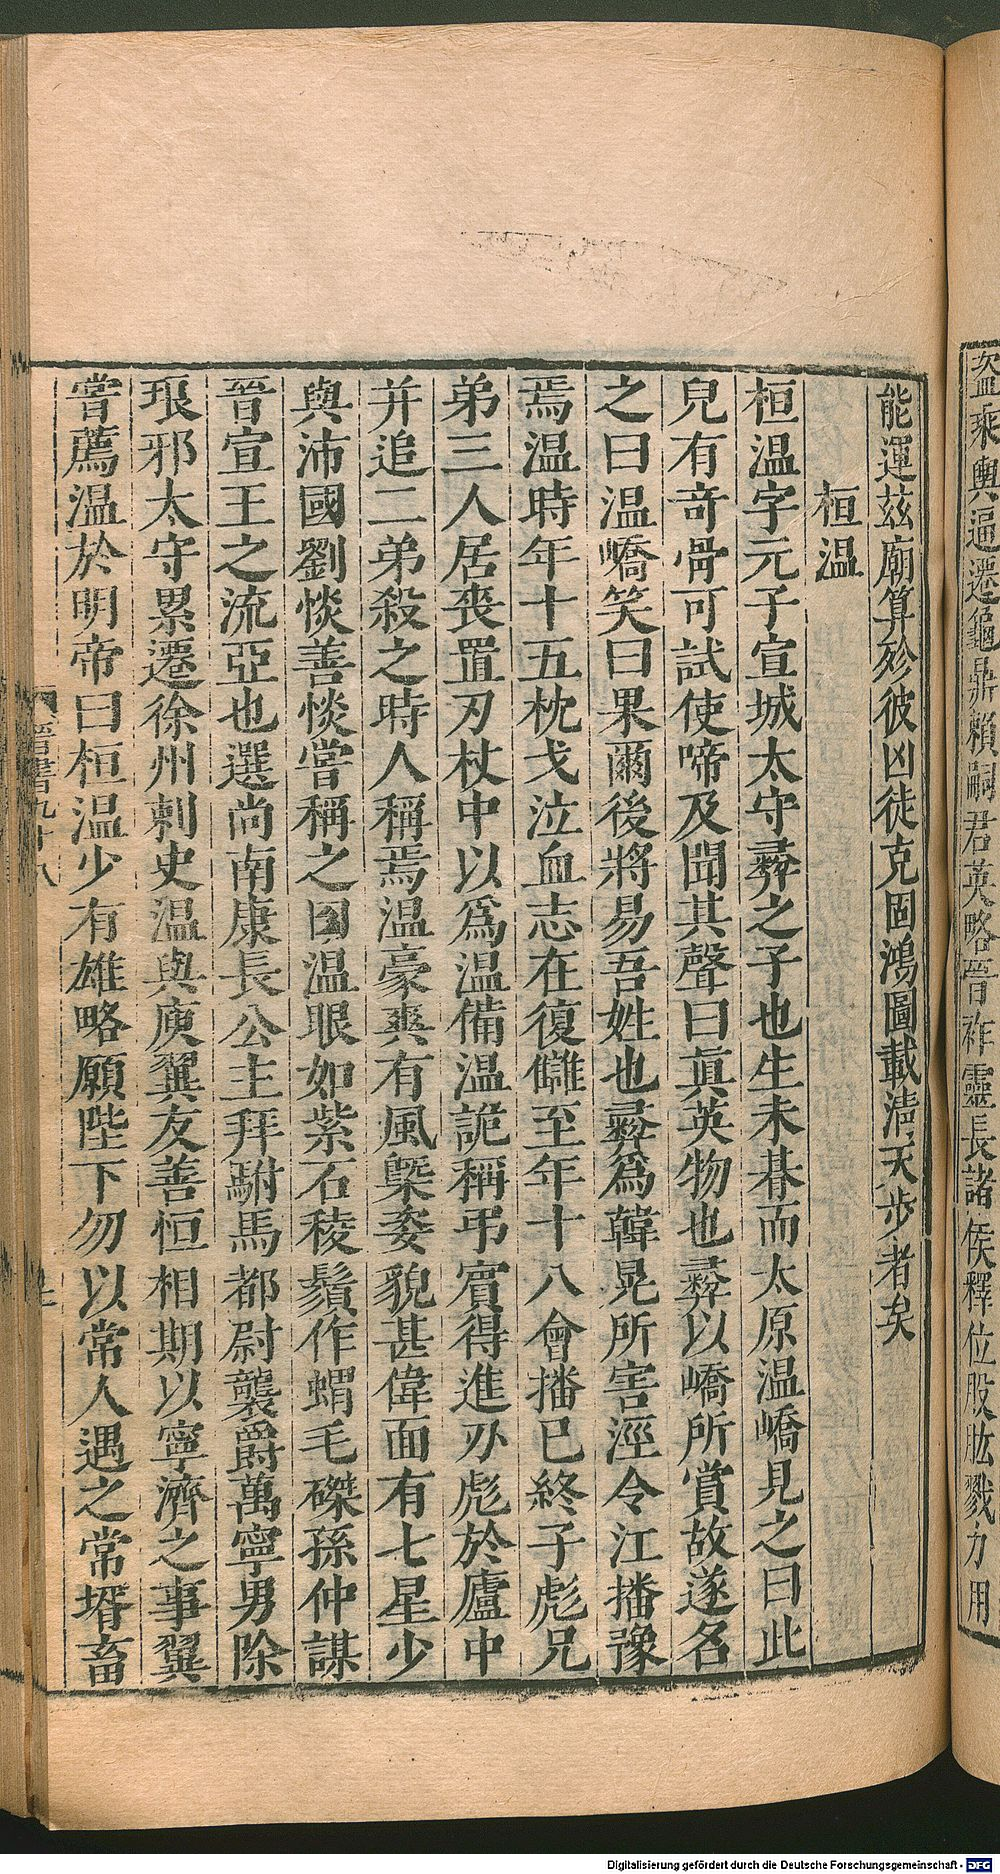 盜乘輿逼遷龜鼎賴嗣君英略晉祚靈長諸侯釋位股肱戮力用
能運茲廟算殄彼凶徒克固鴻圖載清天步者矣
桓温
桓温字元子宣城太守彝之子也生未朞而太原温嶠見之曰此
兒有奇骨可試使啼及聞其聲曰眞英物也彝以嶠所賞故遂名
之曰温嶠笑曰果爾後將易吾姓也彝爲韓晃所害涇令江播豫
焉温時年十五枕戈泣血志在復讎至年十八會播已終子彪兄
弟三人居喪置刃杖中以爲温備温詭稱弔賓得進刃彪於廬中
并追二弟殺之時人稱焉温豪爽有風槩姿貌甚偉面有七星少
與沛國劉惔善惔嘗稱之曰温眼如紫石稜鬚作蝟毛磔孫仲謀
晉宣王之流亞也選尚南康長公主拜駙馬都尉襲爵萬寧男除
琅邪太守累遷徐州刺史温與庾翼友善恒相期以寧濟之事翼
嘗薦温於明帝曰桓温少有雄略願陛下勿以常人遇之常壻畜
晉書九十八
Digitalisierung gefördert durch die Deutsche Forschungsgemeinschaft - DFG